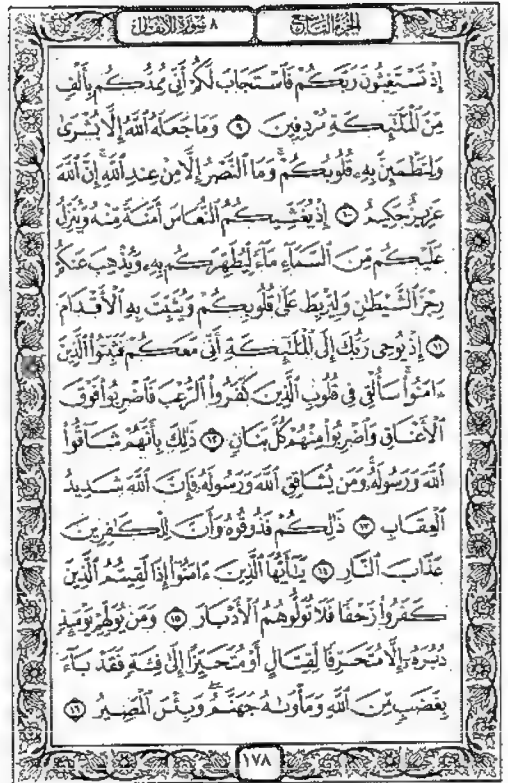 الجزء التاسع
٨ سورة الأنفال
إِذْ تَسْتَغِيثُونَ رَبَّكُمْ فَٱسْتَجَابَ لَكُمْ أَنِّى مُمِدُّكُم بِأَلْفٍ
مِّنَ ٱلْمَلَٰٓئِكَةِ مُرْدِفِينَ ٩ وَمَا جَعَلَهُ ٱللَّهُ إِلَّا بُشْرَىٰ
وَلِتَطْمَئِنَّ بِهِۦ قُلُوبُكُمْ ۚ وَمَا ٱلنَّصْرُ إِلَّا مِنْ عِندِ ٱللَّهِ ۚ إِنَّ ٱللَّهَ
عَزِيزٌ حَكِيمٌ ١٠ إِذْ يُغَشِّيكُمُ ٱلنُّعَاسَ أَمَنَةً مِّنْهُ وَيُنَزِّلُ
عَلَيْكُم مِّنَ ٱلسَّمَآءِ مَآءً لِّيُطَهِّرَكُم بِهِۦ وَيُذْهِبَ عَنكُمْ
رِجْزَ ٱلشَّيْطَٰنِ وَلِيَرْبِطَ عَلَىٰ قُلُوبِكُمْ وَيُثَبِّتَ بِهِ ٱلْأَقْدَامَ
١١ إِذْ يُوحِى رَبُّكَ إِلَى ٱلْمَلَٰٓئِكَةِ أَنِّى مَعَكُمْ فَثَبِّتُوا۟ ٱلَّذِينَ
ءَامَنُوا۟ ۚ سَأُلْقِى فِى قُلُوبِ ٱلَّذِينَ كَفَرُوا۟ ٱلرُّعْبَ فَٱضْرِبُوا۟ فَوْقَ
ٱلْأَعْنَاقِ وَٱضْرِبُوا۟ مِنْهُمْ كُلَّ بَنَانٍ ١٢ ذَٰلِكَ بِأَنَّهُمْ شَآقُّوا۟
ٱللَّهَ وَرَسُولَهُۥ ۚ وَمَن يُشَاقِقِ ٱللَّهَ وَرَسُولَهُۥ فَإِنَّ ٱللَّهَ شَدِيدُ
ٱلْعِقَابِ ١٣ ذَٰلِكُمْ فَذُوقُوهُ وَأَنَّ لِلْكَٰفِرِينَ
عَذَابَ ٱلنَّارِ ١٤ يَٰٓأَيُّهَا ٱلَّذِينَ ءَامَنُوٓا۟ إِذَا لَقِيتُمُ ٱلَّذِينَ
كَفَرُوا۟ زَحْفًا فَلَا تُوَلُّوهُمُ ٱلْأَدْبَارَ ١٥ وَمَن يُوَلِّهِمْ يَوْمَئِذٍ
دُبُرَهُۥٓ إِلَّا مُتَحَرِّفًا لِّقِتَالٍ أَوْ مُتَحَيِّزًا إِلَىٰ فِئَةٍ فَقَدْ بَآءَ
بِغَضَبٍ مِّنَ ٱللَّهِ وَمَأْوَىٰهُ جَهَنَّمُ ۖ وَبِئْسَ ٱلْمَصِيرُ ١٦
١٧٨